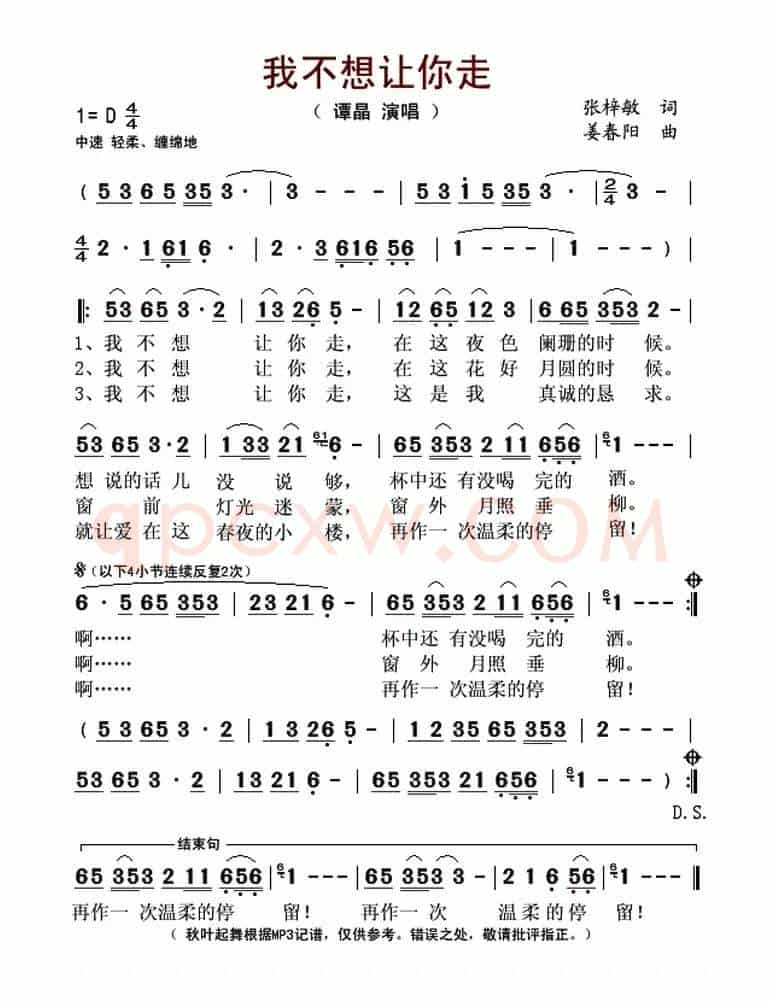 我不想让你走
（ 谭晶 演唱 ）
张梓敏 词
姜春阳 曲
1= D 4/4
中速 轻柔、缠绵地
( 5 3 6 5 35 3 · | 3 - - - | 5 3 1 5 35 3 · | 2/4 3 - |
4/4 2 · 1 61 6 · | 2 · 3 616 56 | 1 - - - | 1 - - - ) |
|: 53 65 3 · 2 | 13 26 5 - | 12 65 12 3 | 6 65 353 2 - |
1、我 不 想 让 你 走， 在 这 夜 色 阑珊的时 候。
2、我 不 想 让 你 走， 在 这 花 好 月圆的时 候。
3、我 不 想 让 你 走， 这 是 我 真诚的恳 求。
53 65 3·2 | 1 33 21 61 6 - | 65 353 2 11 656 | 6 1 - - - |
想 说的话 儿 没 说 够， 杯中还 有没喝 完的 酒。
窗 前 灯光 迷 蒙， 窗 外 月照 垂 柳。
就让爱 在 这 春夜的小 楼， 再作一 次温柔的停 留！
qpcxw.COM
𝄋（以下4小节连续反复2次）
6 · 5 65 353 | 23 21 6 - | 65 353 2 11 656 | 6 1 - - - :|
啊…… 杯中还 有没喝 完的 酒。
啊…… 窗 外 月照 垂 柳。
啊…… 再作一 次温柔的停 留！
( 5 3 65 3 · 2 | 1 3 26 5 - | 12 65 12 3 | 6 65 353 | 2 - - - |
53 65 3 · 2 | 1 33 21 6 - | 65 353 21 656 | 6 1 - - - ) :|
D.S.
结束句
65 353 2 11 656 | 6 1 - - - | 65 353 3 - | 2 1 6 56 | 6 1 - - - |
再作一 次温柔的停 留！ 再作一 次 温 柔的停 留！
（ 秋叶起舞根据MP3记谱，仅供参考。错误之处，敬请批评指正。）